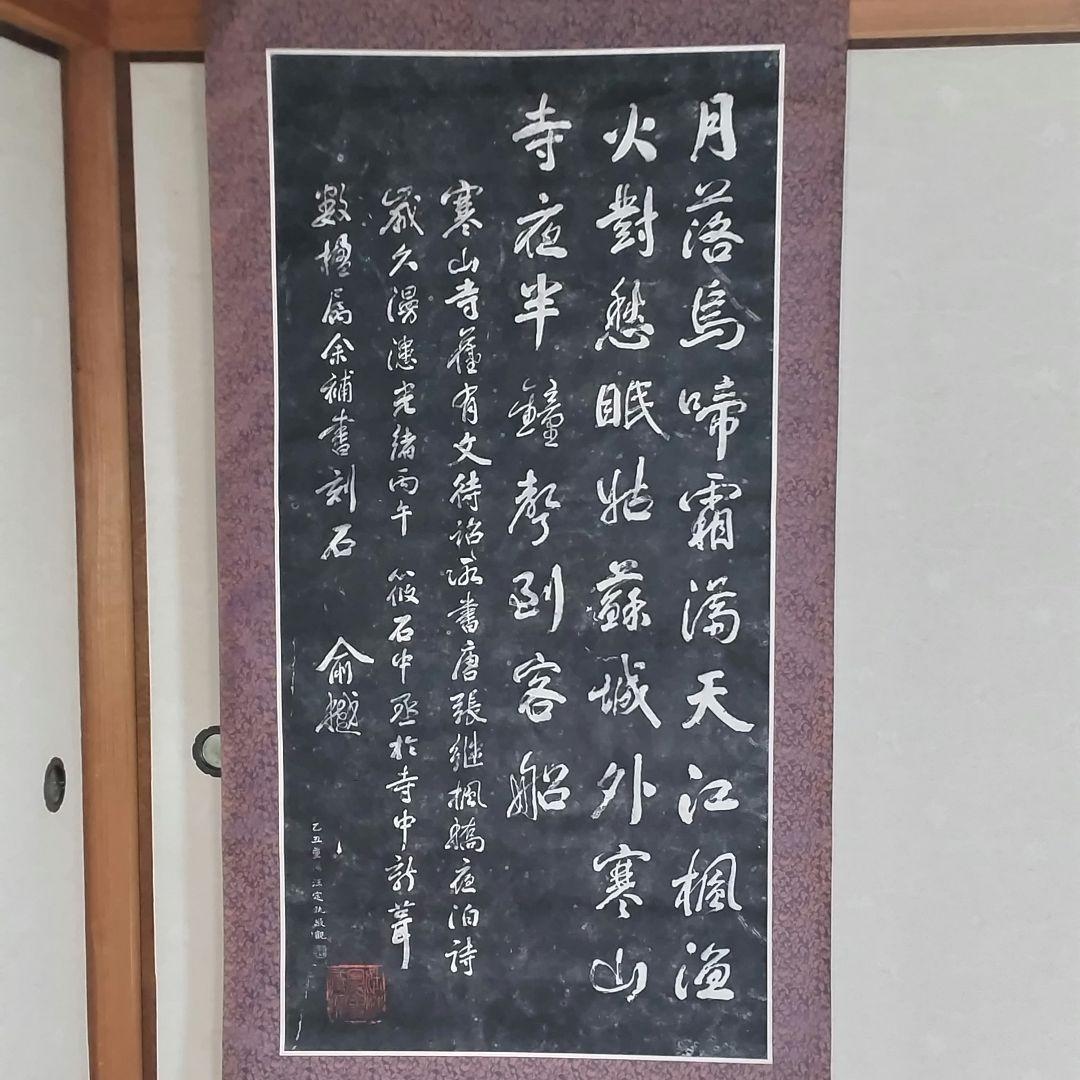 月落烏啼霜滿天江楓漁
火對愁眠姑蘇城外寒山
寺夜半鐘聲到客船
寒山寺舊有文待詔所書唐張繼楓橋夜泊詩
歲久漫漶光緒丙午筱石中丞於寺中新葺
數楹屬余補書刻石
俞樾
乙丑